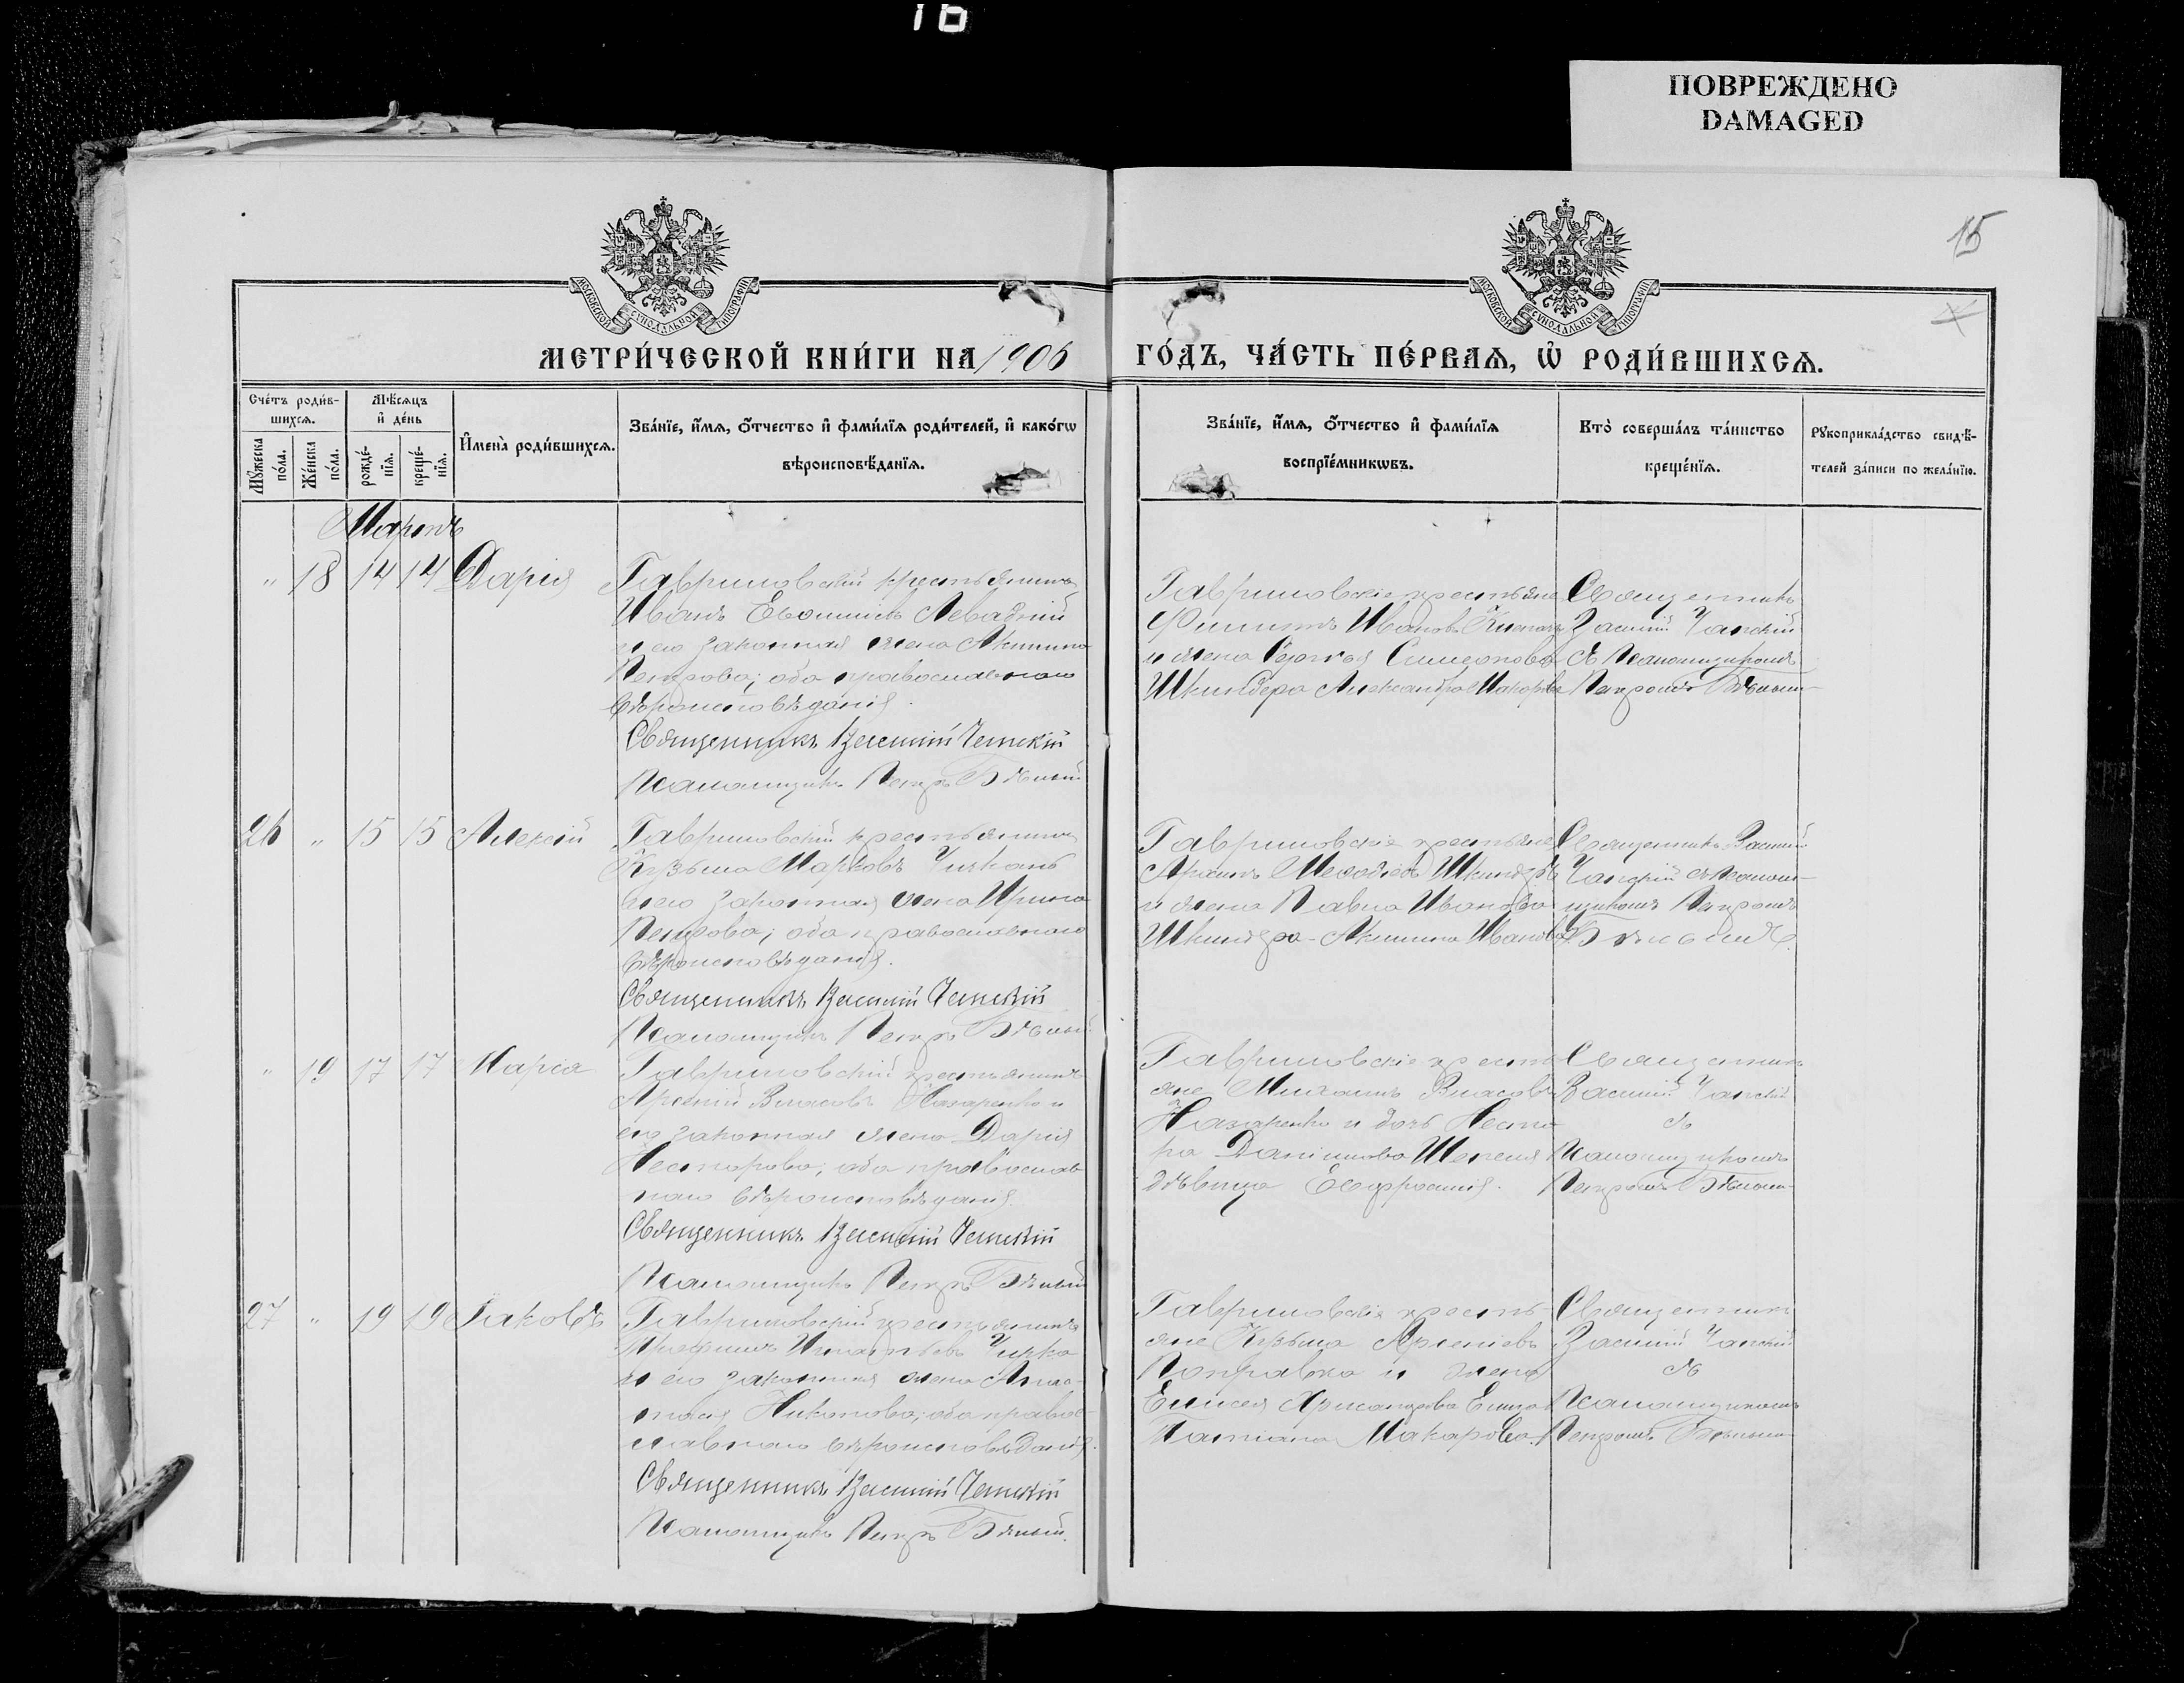 16
ПОВРЕЖДЕНО
DAMAGED
15
МОСКОВСКОЙ СѴНОДАЛЬНОЙ ТИПОГРАФІИ
МОСКОВСКОЙ СѴНОДАЛЬНОЙ ТИПОГРАФІИ
МЕТРИ́ЧЕСКОЙ КНИ́ГИ НА 1906
ГО́ДЪ, ЧА́СТЬ ПЕ́РВАѦ, Ѡ҆ РОДИ́ВШИХСѦ.
Сче́тъ роди́в-
шихсѧ.
Мꙋжеска по́ла.
Же́нска по́ла.
Мѣ́сѧцъ
и҆ де́нь
рожде́-
нїѧ.
креще́-
нїѧ.
И҆мена̀ роди́вшихсѧ.
Зва́нїе, и҆́мѧ, ѻ҆́тчество и҆ фами́лїѧ роди́телей, и҆ како́гѡ
вѣроисповѣ́данїѧ.
Зва́нїе, и҆́мѧ, ѻ҆́тчество и҆ фами́лїѧ
воспрїе́мникѡвъ.
Кто̀ соверша́лъ та́инство
креще́нїѧ.
Рꙋкоприкла́дство свидѣ́-
телей за́писи по жела́нїю.
Мартъ
" 18 14 14 Дарія
Гавриловскій крестьянинъ
Иванъ Левадній
и его законная жена Акилина
Петрова; оба православнаго
вѣроисповѣданія.
Священникъ Василій
Псаломщикъ Петръ Бѣлый
Гавриловскіе крестьяне
Филиппъ Ивановъ
и жена Симеонова
Шкиндера Александра Макарова
Священникъ
Василій
съ Псаломщикомъ
Петромъ Бѣлым-
26 " 15 15 Алексій
Гавриловскій крестьянинъ
Кузьма Марковъ
и его законная жена Ирина
Петрова; оба православнаго
вѣроисповѣданія.
Священникъ Василій
Псаломщикъ Петръ Бѣлый
Гавриловскіе крестьяне
Меѳодіевъ Шкиндеръ
и жена Павла Иванова
Шкиндера - Акилина Иванова
Священникъ Василій
съ Псалом-
щикомъ Петромъ
Бѣлымъ
" 19 17 17 Марія
Гавриловскій крестьянинъ
Арсеній Власовъ Назаренко и
его законная жена Дарія
Несторова; оба православ
наго вѣроисповѣданія.
Священникъ Василій
Псаломщикъ Петръ Бѣлый
Гавриловскіе кресть
яне Михаилъ Власовъ
Назаренко и дочь Несто
ра Даніилова Шепеля
дѣвица Евфросинія.
Священникъ
Василій
съ
Псаломщикомъ
Петромъ Бѣлым-
27 " 19 19 Іаковъ
Гавриловскій крестьянинъ
Трофимъ Игнатьевъ
и его законная жена Анас-
тасія Никонова; оба правос-
лавнаго вѣроисповѣданія.
Священникъ Василій
Псаломщикъ Петръ Бѣлый.
Гавриловскіе кресть-
яне Кузьма Арсеніевъ
Поправка и жена
Елисея
Татіана Макарова.
Священникъ
Василій
съ
Псаломщикомъ
Петромъ Бѣлым-